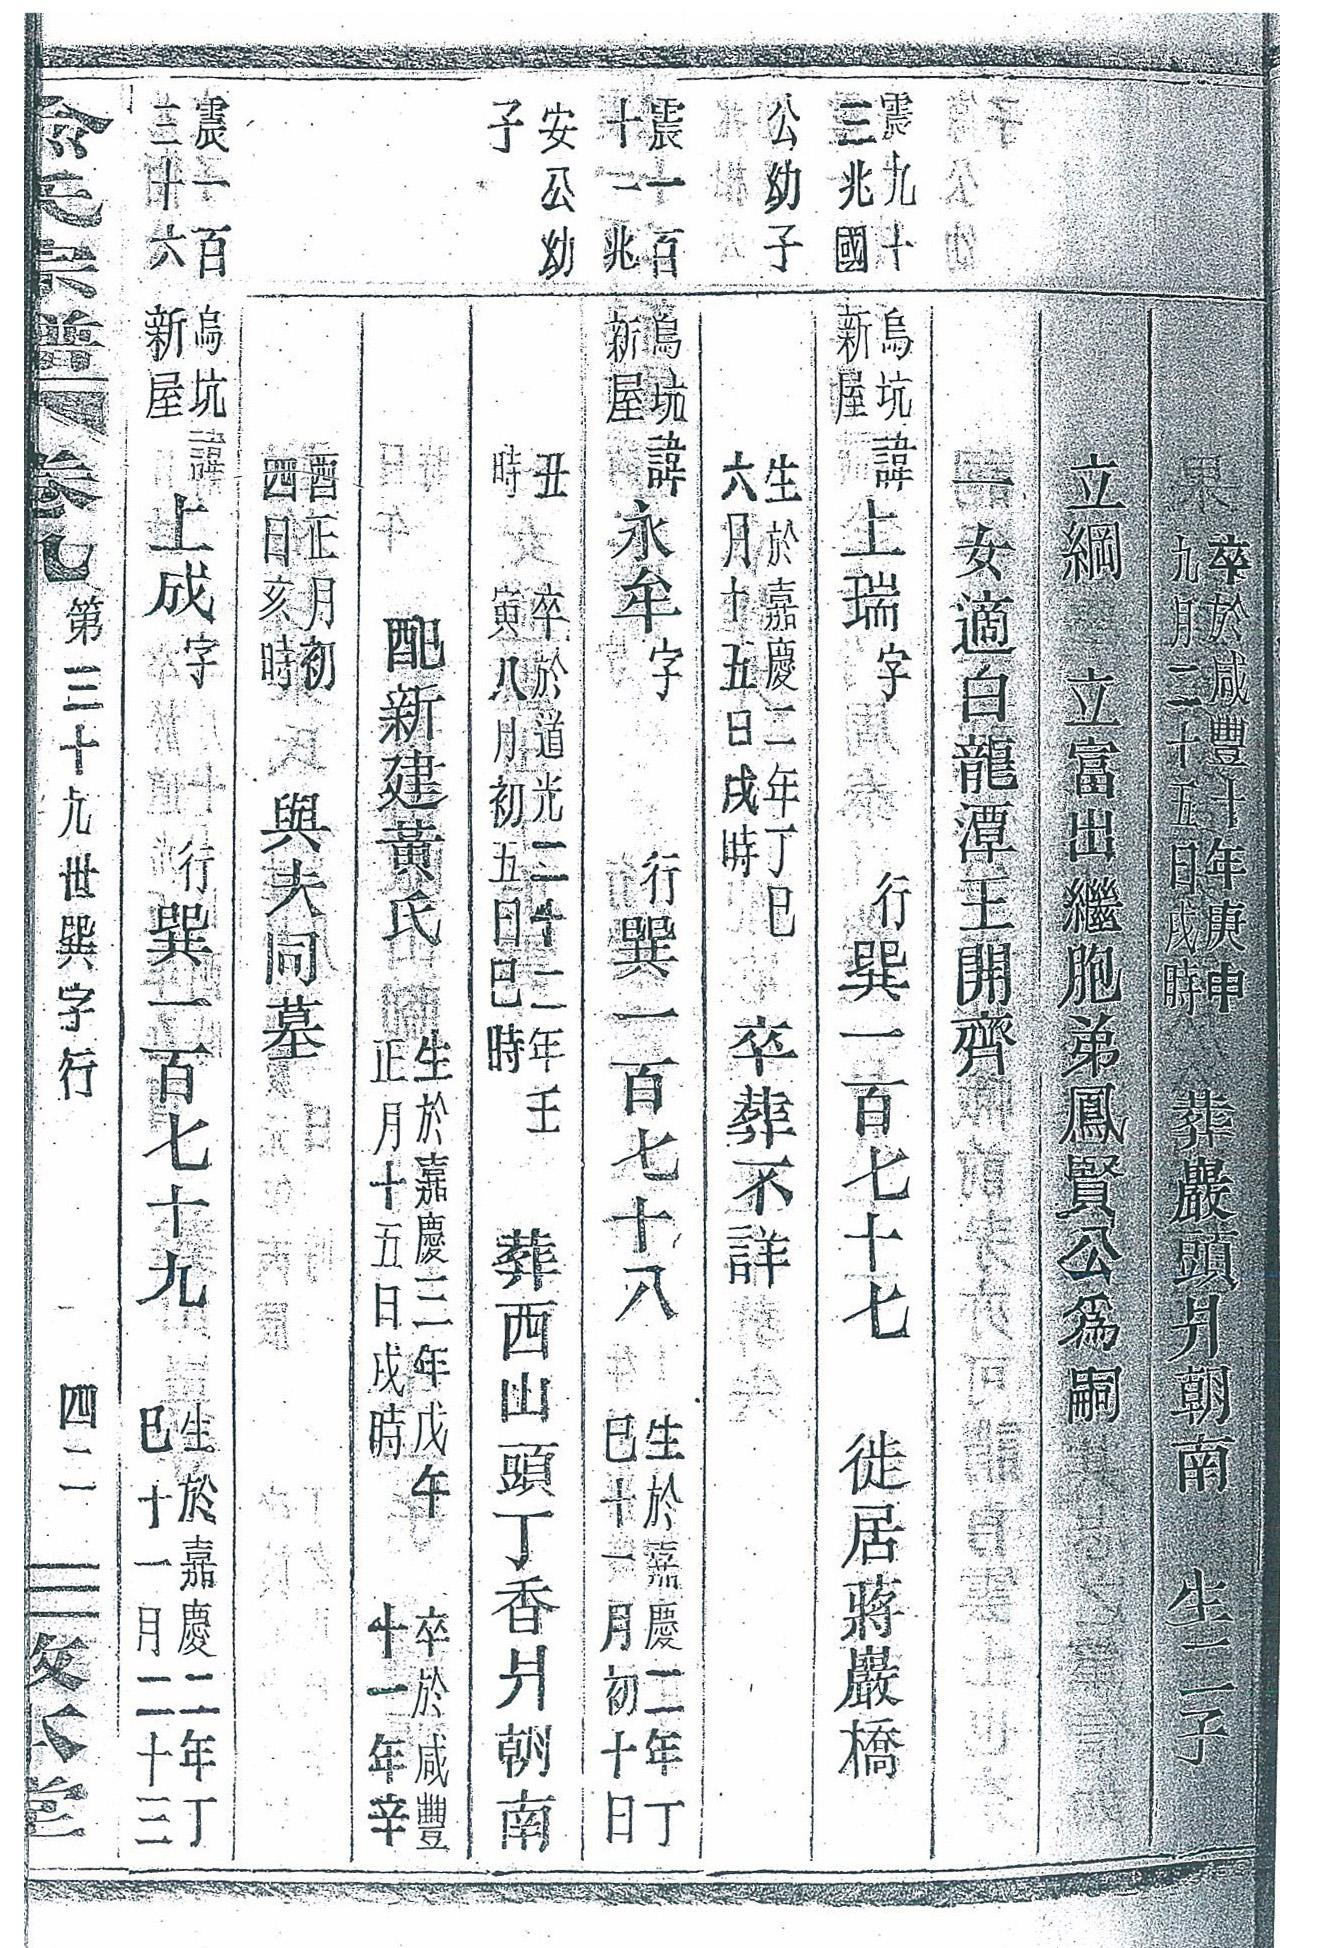 卒於咸豐十年庚申九月二十五日戌時 葬巖頭爿朝南 生二子
立綱 立富出繼胞弟鳳賢公爲嗣
一女適白龍潭王開齊
震九十三兆國公幼子
烏坑新屋 諱上瑞字 行巽一百七十七 徙居蔣巖橋
生於嘉慶二年丁巳六月十五日戌時 卒葬不詳
震一百十一兆安公幼子
烏坑新屋 諱永牟字 行巽一百七十八 生於嘉慶二年丁巳十一月初十日
丑時 卒於道光二十二年壬寅八月初五日巳時 葬西山頭丁香爿朝南
配新建黃氏 生於嘉慶三年戊午正月十五日戌時 卒於咸豐十一年辛
酉正月初四日亥時 與夫同墓
震一百三十六
烏坑新屋 諱上成字 行巽一百七十九 生於嘉慶二年丁巳十一月二十三
俞氏宗譜 卷九 第三十九世巽字行 四二 三敦本堂